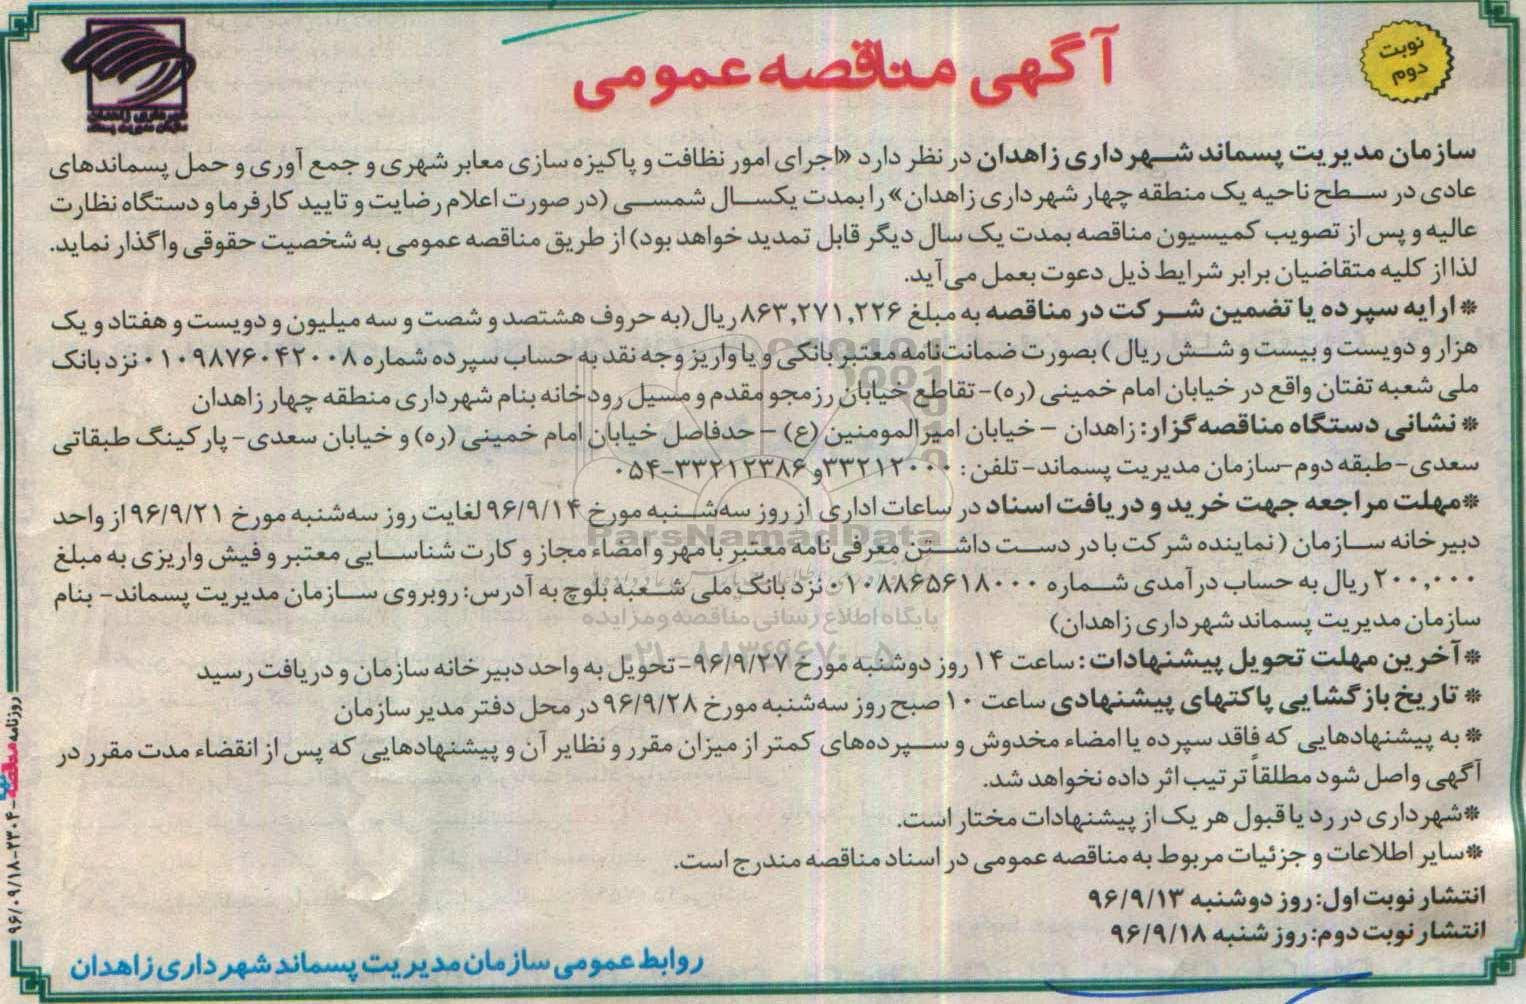 نوبت
دوم
آگهی مناقصه عمومی
شهرداری زاهدان
سازمان مدیریت پسماند
سازمان مدیریت پسماند شهرداری زاهدان در نظر دارد «اجرای امور نظافت و پاکیزه سازی معابر شهری و جمع آوری و حمل پسماندهای
عادی در سطح ناحیه یک منطقه چهار شهرداری زاهدان» را بمدت یکسال شمسی (در صورت اعلام رضایت و تایید کارفرما و دستگاه نظارت
عالیه و پس از تصویب کمیسیون مناقصه بمدت یک سال دیگر قابل تمدید خواهد بود) از طریق مناقصه عمومی به شخصیت حقوقی واگذار نماید.
لذا از کلیه متقاضیان برابر شرایط ذیل دعوت بعمل می‌آید.
* ارایه سپرده یا تضمین شرکت در مناقصه به مبلغ ۸۶۳,۲۷۱,۲۲۶ ریال(به حروف هشتصد و شصت و سه میلیون و دویست و هفتاد و یک
هزار و دویست و بیست و شش ریال ) بصورت ضمانت‌نامه معتبر بانکی و یا واریز وجه نقد به حساب سپرده شماره ۰۱۰۹۸۷۶۰۴۲۰۰۸ نزد بانک
ملی شعبه تفتان واقع در خیابان امام خمینی (ره)- تقاطع خیابان رزمجو مقدم و مسیل رودخانه بنام شهرداری منطقه چهار زاهدان
* نشانی دستگاه مناقصه‌گزار: زاهدان – خیابان امیرالمومنین (ع) – حدفاصل خیابان امام خمینی (ره) و خیابان سعدی- پارکینگ طبقاتی
سعدی- طبقه دوم-سازمان مدیریت پسماند- تلفن : ۳۳۲۱۲۰۰۰ و ۳۳۲۱۲۳۸۶-۰۵۴
*مهلت مراجعه جهت خرید و دریافت اسناد در ساعات اداری از روز سه‌شنبه مورخ ۹۶/۹/۱۴ لغایت روز سه‌شنبه مورخ ۹۶/۹/۲۱ از واحد
دبیرخانه سازمان ( نماینده شرکت با در دست داشتن معرفی‌نامه معتبر با مهر و امضاء مجاز و کارت شناسایی معتبر و فیش واریزی به مبلغ
۲۰۰,۰۰۰ ریال به حساب درآمدی شماره ۰۱۰۸۸۶۵۶۱۸۰۰۰ نزد بانک ملی شعبه بلوچ به آدرس: روبروی سازمان مدیریت پسماند- بنام
سازمان مدیریت پسماند شهرداری زاهدان)
*آخرین مهلت تحویل پیشنهادات : ساعت ۱۴ روز دوشنبه مورخ ۹۶/۹/۲۷- تحویل به واحد دبیرخانه سازمان و دریافت رسید
* تاریخ بازگشایی پاکتهای پیشنهادی ساعت ۱۰ صبح روز سه‌شنبه مورخ ۹۶/۹/۲۸ در محل دفتر مدیر سازمان
* به پیشنهادهایی که فاقد سپرده یا امضاء مخدوش و سپرده‌های کمتر از میزان مقرر و نظایر آن و پیشنهادهایی که پس از انقضاء مدت مقرر در
آگهی واصل شود مطلقاً ترتیب اثر داده نخواهد شد.
*شهرداری در رد یا قبول هر یک از پیشنهادات مختار است.
*سایر اطلاعات و جزئیات مربوط به مناقصه عمومی در اسناد مناقصه مندرج است.
انتشار نوبت اول: روز دوشنبه ۹۶/۹/۱۳
انتشار نوبت دوم: روز شنبه ۹۶/۹/۱۸
روابط عمومی سازمان مدیریت پسماند شهرداری زاهدان
روزنامه مناقصه -۲۳۰۴-۹۶/۰۹/۱۸
ParsNamadData
پایگاه اطلاع رسانی مناقصه و مزایده
۰۲۱-۸۸۳۴۹۶۷۰-۵